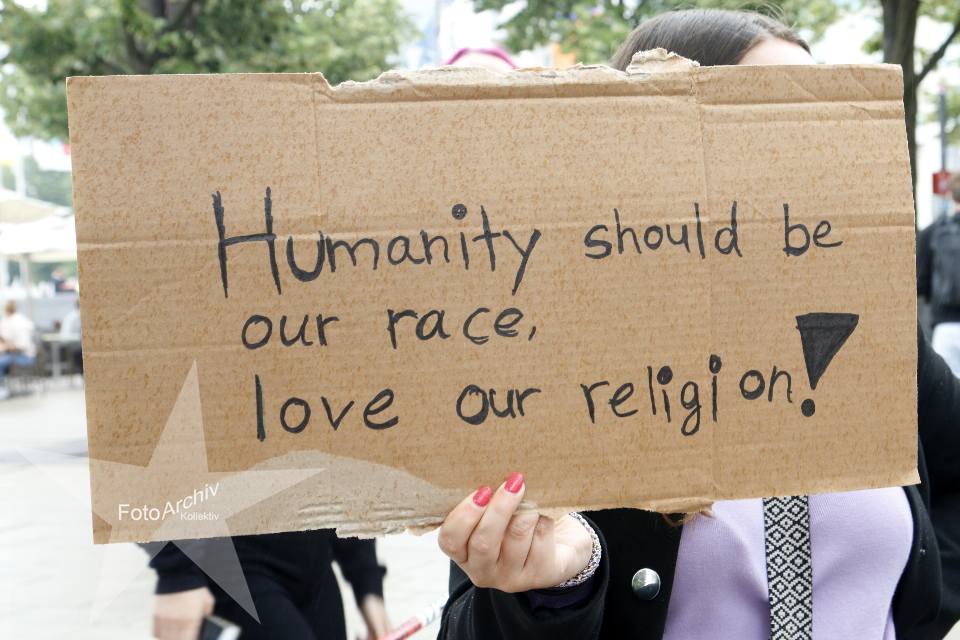 Humanity should be
our race,
love our religion!
FotoArchiv
Kollektiv